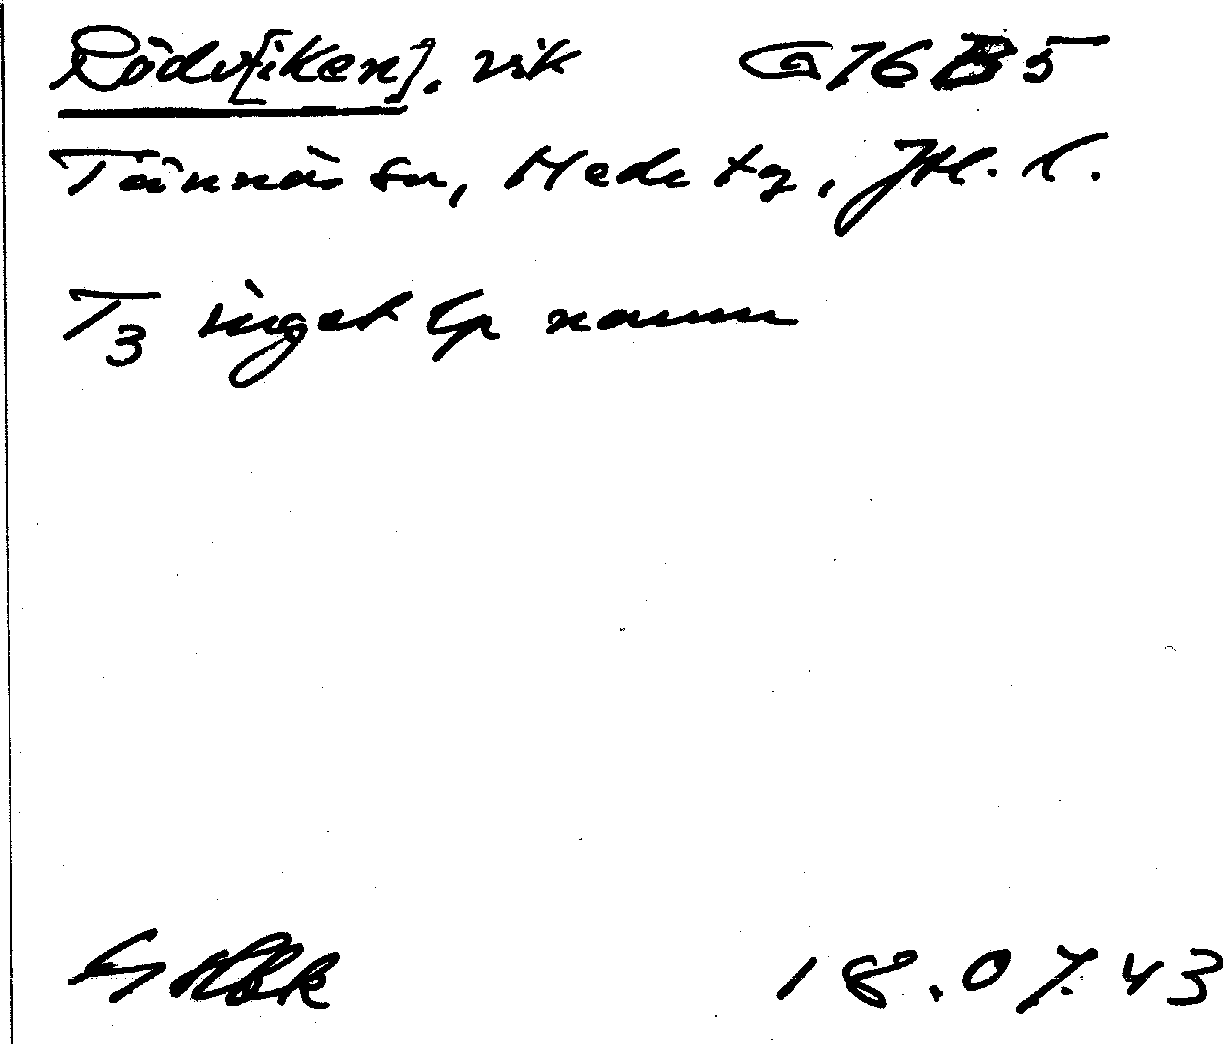 Rödv[iken], vik G16B5
Tännäs sn, Hede tg, Jtl. l.
T3 inget lp namn
18.07.43